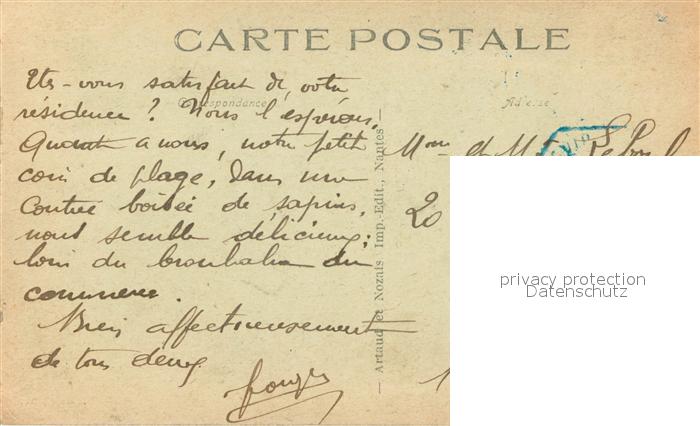 CARTE POSTALE
Correspondance
Adresse
Etes-vous satisfait de votre
résidence ? Nous l'espérons.
Quant a nous, notre petit
coin de plage, dans une
contrée boisée de sapins,
nous semble délicieux;
loin du brouhaha du
commerce.
Bien affectueusement
de tous deux
Artaud et Nozais Imp.-Edit., Nantes
Mme et Mr
20
privacy protection
Datenschutz